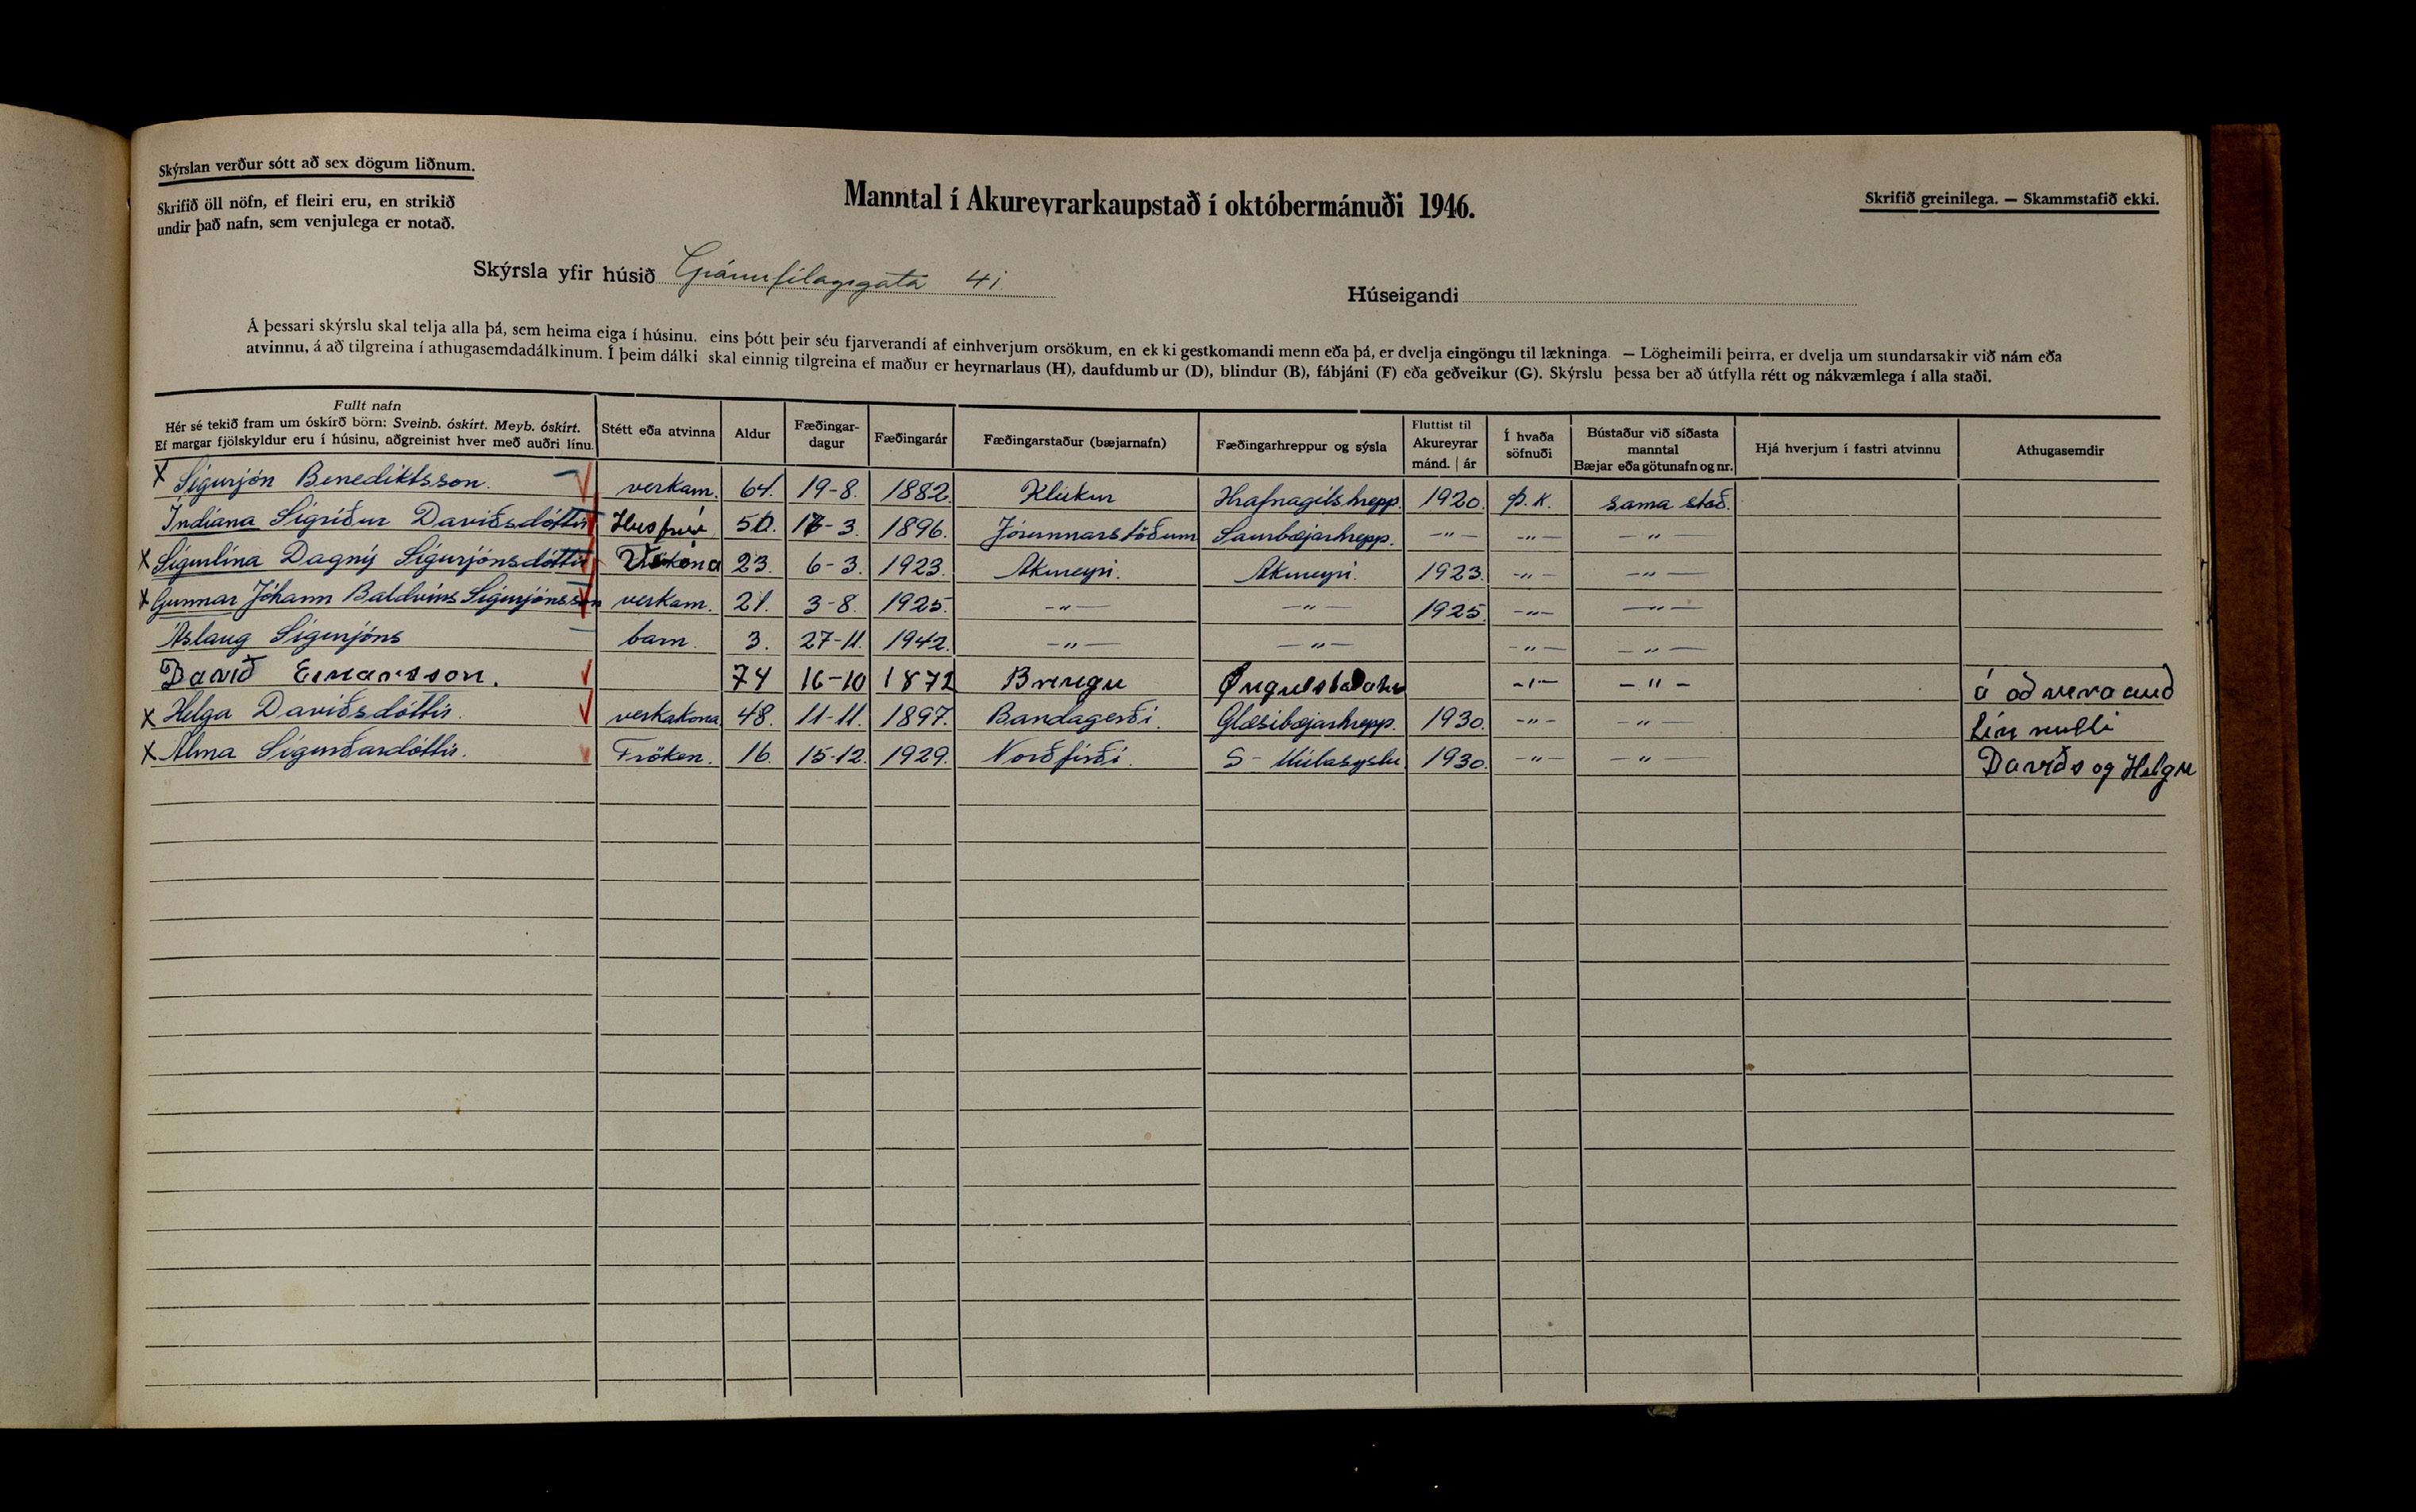 Skýrslan verður sótt að sex dögum liðnum.
Skrifið öll nöfn, ef fleiri eru, en strikið
undir það nafn, sem venjulega er notað.
Manntal í Akureyrarkaupstað í októbermánuði 1946.
Skrifið greinilega. — Skammstafið ekki.
Skýrsla yfir húsið Gránufélagsgata 41
Húseigandi
Á þessari skýrslu skal telja alla þá, sem heima eiga í húsinu, eins þótt þeir séu fjarverandi af einhverjum orsökum, en ekki gestkomandi menn eða þá, er dvelja eingöngu til lækninga. — Lögheimili þeirra, er dvelja um stundarsakir við nám eða
atvinnu, á að tilgreina í athugasemdadálkinum. Í þeim dálki skal einnig tilgreina ef maður er heyrnarlaus (H), daufdumbur (D), blindur (B), fábjáni (F) eða geðveikur (G). Skýrslu þessa ber að útfylla rétt og nákvæmlega í alla staði.
Fullt nafn
Hér sé tekið fram um óskírð börn: Sveinb. óskírt. Meyb. óskírt.
Ef margar fjölskyldur eru í húsinu, aðgreinist hver með auðri línu.
Stétt eða atvinna
Aldur
Fæðingar-
dagur
Fæðingarár
Fæðingarstaður (bæjarnafn)
Fæðingarhreppur og sýsla
Fluttist til
Akureyrar
mánd. | ár
Í hvaða
söfnuði
Bústaður við síðasta
manntal
Bæjar eða götunafn og nr.
Hjá hverjum í fastri atvinnu
Athugasemdir
x Sigurjón Benediktsson. verkam. 64. 19-8. 1882. Klúkur Hrafnagilshrepp. 1920. Þ.K. sama stað.
Indíana Sigríður Davíðsdóttir Húsfrú 50. 16-3. 1896. Jórunnarstöðum Saurbæjarhrepp. —"— —"— —"—
x Sigurlína Dagný Sigurjónsdóttir 23. 6-3. 1923. Akureyri. Akureyri. 1923. —"— —"—
x Gunnar Jóhann Baldvins Sigurjónsson verkam. 21. 3-8. 1925. —"— —"— 1925. —"— —"—
Áslaug Sigurjóns barn. 3. 27-11. 1942. —"— —"— —"— —"—
Davíð Einarsson. 74 16-10 1872 —"— —"— á að vera auð
x Helga Davíðsdóttir. verkakona 48. 11-11. 1897. Bandagerði. Glæsibæjarhrepp. 1930. —"— —"— lína milli
x Alma Sigurðardóttir. Fröken. 16. 15-12. 1929. Norðfirði. S-Múlasýslu 1930. —"— —"— Davíðs og Helgu